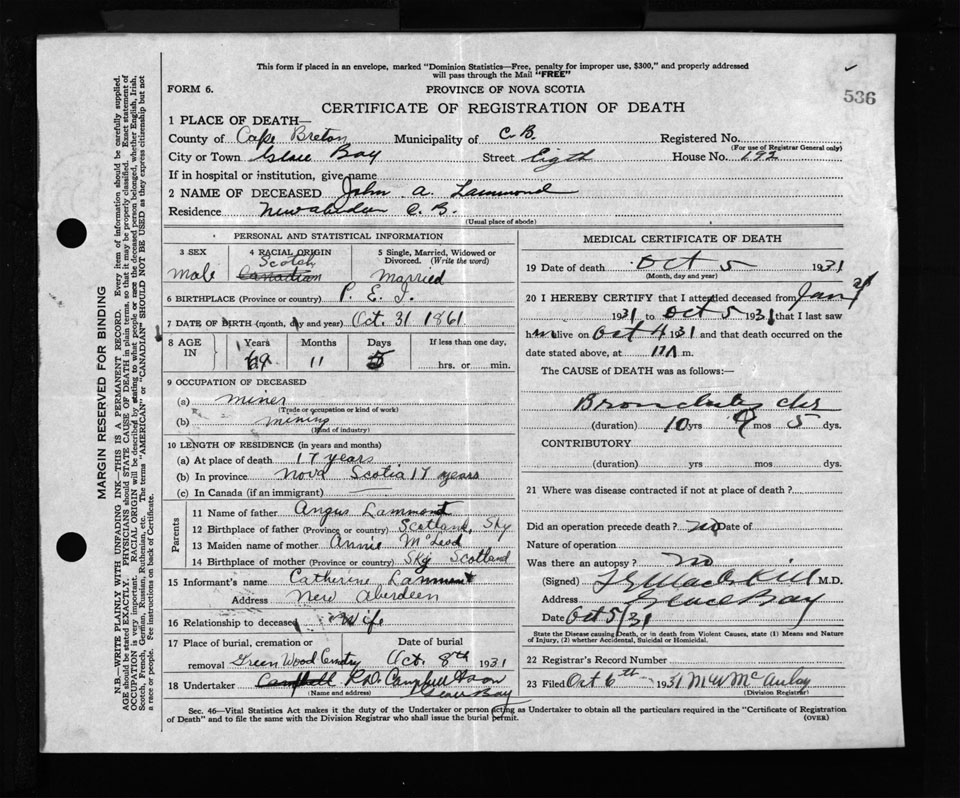 This form if placed in an envelope, marked "Dominion Statistics—Free, penalty for improper use, $300," and properly addressed
will pass through the Mail "FREE"
FORM 6.
PROVINCE OF NOVA SCOTIA
536
CERTIFICATE OF REGISTRATION OF DEATH
1 PLACE OF DEATH—
County of Cape Breton Municipality of C.B. Registered No.
(For use of Registrar General only)
City or Town Glace Bay Street Eigth House No. 192
If in hospital or institution, give name
2 NAME OF DECEASED John A. Lammond
Residence New Aberdeen C.B.
(Usual place of abode)
PERSONAL AND STATISTICAL INFORMATION
3 SEX
Male
4 RACIAL ORIGIN
Scotch
Canadian
5 Single, Married, Widowed or
Divorced. (Write the word)
Married
6 BIRTHPLACE (Province or country) P.E.I.
7 DATE OF BIRTH (month, day and year) Oct. 31 1861
8 AGE IN
Years 69
Months 11
Days 5
If less than one day,
hrs. or min.
9 OCCUPATION OF DECEASED
(a) miner
(Trade or occupation or kind of work)
(b) mining
(Kind of industry)
10 LENGTH OF RESIDENCE (in years and months)
(a) At place of death 17 years
(b) In province Nova Scotia 17 years
(c) In Canada (if an immigrant)
Parents
11 Name of father Angus Lammont
12 Birthplace of father (Province or country) Scotland, Sky
13 Maiden name of mother Annie McLeod
14 Birthplace of mother (Province or country) Sky Scotland
15 Informant's name Catherine Lammont
Address New Aberdeen
16 Relationship to deceased Wife
17 Place of burial, cremation or
removal Green Wood Cemetry
Date of burial
Oct. 8th 1931
18 Undertaker Campbell R.D. Campbell & Son
(Name and address) Glace Bay
MEDICAL CERTIFICATE OF DEATH
19 Date of death Oct 5 1931
(Month, day and year)
20 I HEREBY CERTIFY that I attended deceased from Jan
1931 to Oct 5 1931 that I last saw
him alive on Oct 4 1931 and that death occurred on
date stated above, at 11 A m.
The CAUSE of DEATH was as follows:—
Bronchitis chr
(duration) 10 yrs 9 mos 5 dys.
CONTRIBUTORY
(duration) yrs mos dys.
21 Where was disease contracted if not at place of death?
Did an operation precede death? no Date of
Nature of operation
Was there an autopsy? no
(Signed) M.D.
Address Glace Bay
Date Oct 5/31
State the Disease causing Death, or in death from Violent Causes, state (1) Means and Nature
of Injury, (2) whether Accidental, Suicidal or Homicidal.
22 Registrar's Record Number
23 Filed Oct 6th 1931 M W McAulay
(Division Registrar)
Sec. 46—Vital Statistics Act makes it the duty of the Undertaker or person acting as Undertaker to obtain all the particulars required in the "Certificate of Registration
of Death" and to file the same with the Division Registrar who shall issue the burial permit. (OVER)
MARGIN RESERVED FOR BINDING
N.B.—WRITE PLAINLY, WITH UNFADING INK—THIS IS A PERMANENT RECORD. Every item of information should be carefully supplied.
AGE should be stated EXACTLY. PHYSICIANS should STATE CAUSE OF DEATH in plain terms, so that it may be properly classified. Exact statement of
OCCUPATION is very important. RACIAL ORIGIN will be described by stating to what people or race the deceased person belonged, whether English, Irish,
Scotch, French, German, Russian, Ruthenian, etc. The terms "AMERICAN" or "CANADIAN" SHOULD NOT BE USED as they express citizenship but not
a race or people. See instructions on back of Certificate.